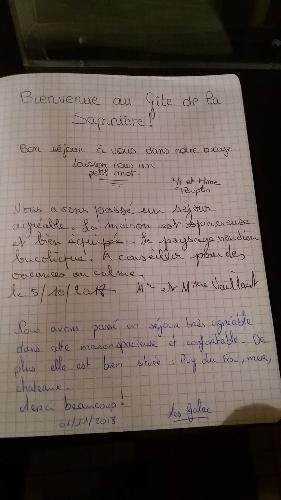 Bienvenue au Gîte de la
Sapinière!
Bon séjour à vous dans notre
Laissez nous un
petit mot.
Mr et Mme
Nous avons passé un séjour
agréable. La maison est spacieuse
et bien équipée. Le paysage vendéen
bucolique. A conseiller pour des
vacances au calme.
le 5/10/2017 Mr et Mme
Nous avons passé un séjour très agréable
dans cette maison spacieuse et confortable. De
plus elle est bien située : Puy du Fou, mer,
chateaux.
Merci beaucoup!
01/11/2018 Les